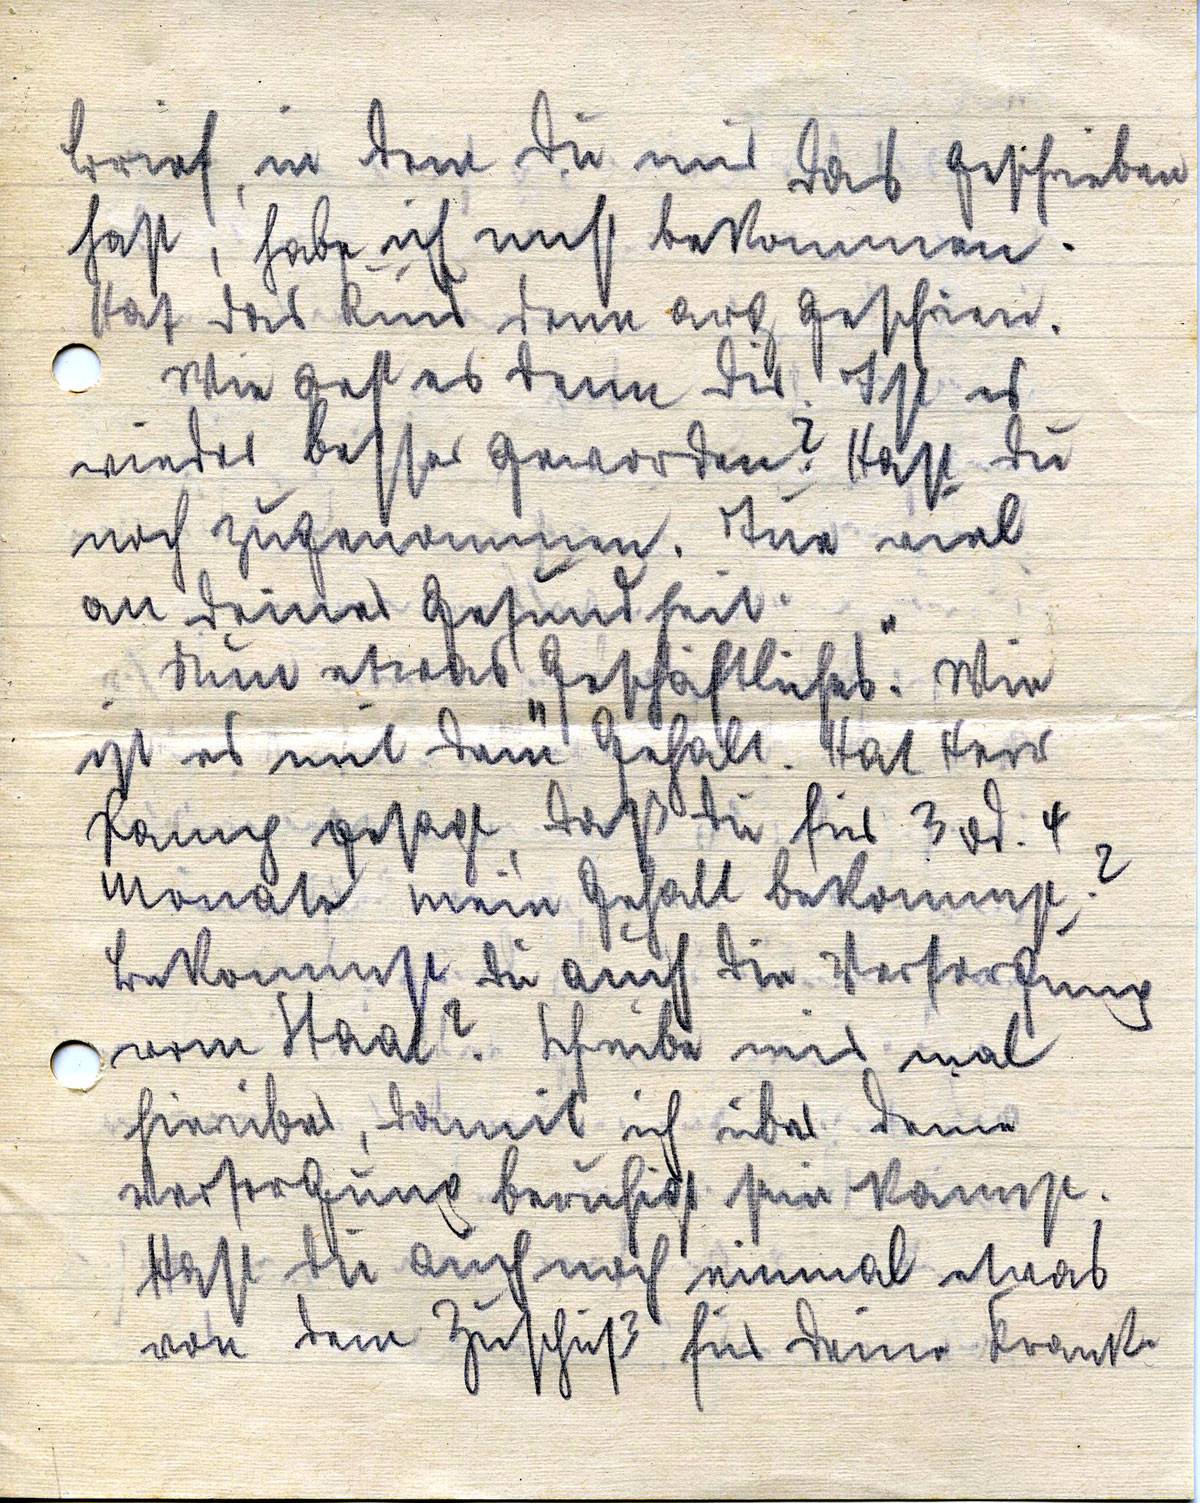 Brief, in dem Du mir das geschrieben
hast, habe ich nicht bekommen.
Hat das Kind denn arg geschrien.
Wie geht es denn Dir. Ist es
wieder besser geworden? Hast Du
noch zugenommen. Tue viel
an Deiner Gesundheit.
Nun etwas „Geschäftliches“. Wie
ist es mit dem Gehalt. Hat Herr
gesagt, daß Du für 3 od. 4
Monate mein Gehalt bekommst?
Bekommst Du auch die Versorgung
vom Staat? Schreibe mir mal
hierüber, damit ich über Deine
Versorgung beruhigt sein kann.
Hast Du auch noch einmal etwas
von dem Zuschuß für Deine Krank-